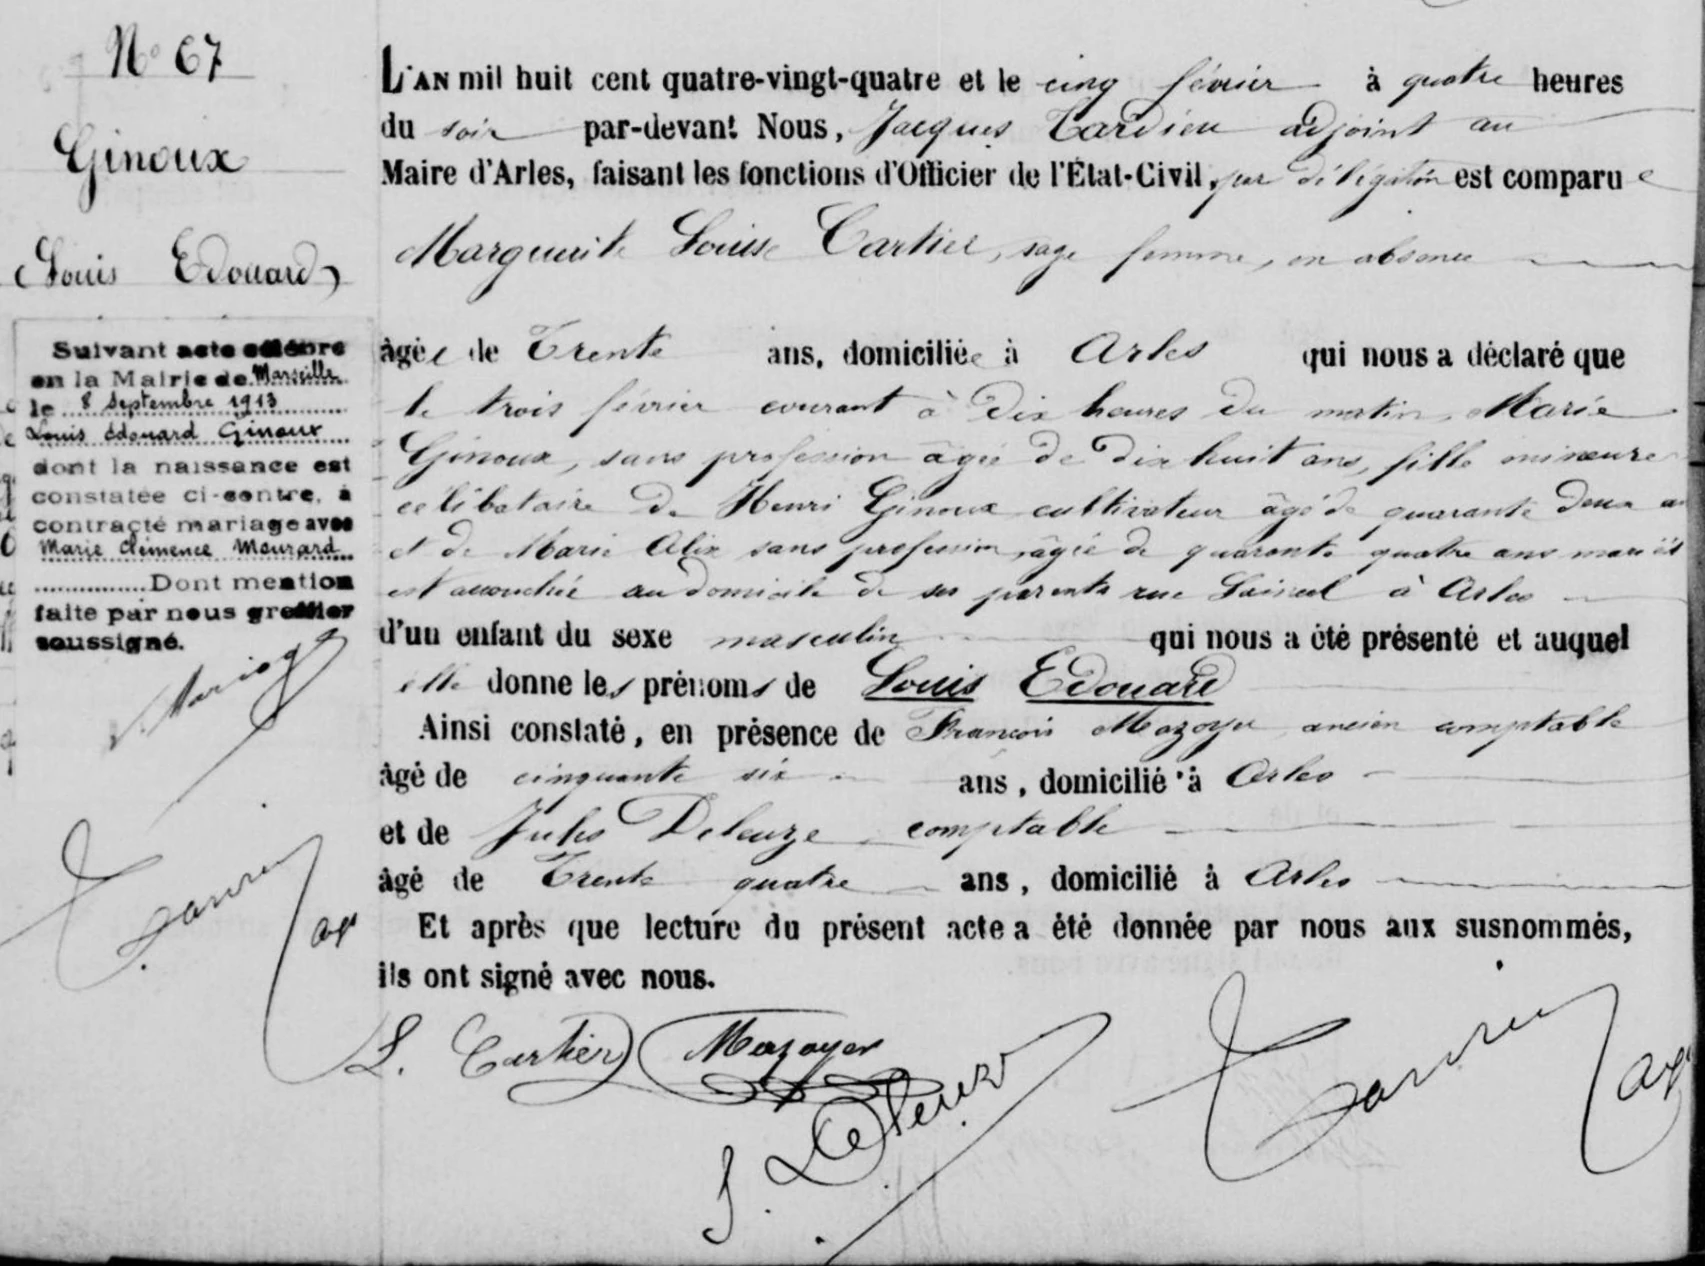 N° 67
Ginoux
Louis Edouard
Suivant acte célébré
en la Mairie de Marseille
le 8 septembre 1913
Louis édouard Ginoux
dont la naissance est
constatée ci-contre, à
contracté mariage avec
Marie Clémence Maurard
Dont mention
faite par nous greffier
soussigné.
L'AN mil huit cent quatre-vingt-quatre et le cinq février à quatre heures
du soir par-devant Nous, Jacques Tardieu adjoint au
Maire d'Arles, faisant les fonctions d'Officier de l'État-Civil, par délégation est comparue
Marguerite Louise Cartier, sage femme, en absence
âgée de Trente ans, domiciliée à Arles qui nous a déclaré que
le trois février courant à dix heures du matin, Marie
Ginoux, sans profession âgée de dix huit ans, fille mineure
célibataire de Henri Ginoux cultivateur âgé de quarante deux
et de Marie Alix sans profession, âgée de quarante quatre ans mariés
est accouchée au domicile de ses parents rue à Arles
d'un enfant du sexe masculin qui nous a été présenté et auquel
elle donne les prénoms de Louis Edouard
Ainsi constaté, en présence de François Mazoyer ancien comptable
âgé de cinquante six ans, domicilié à Arles
et de Jules Deleuze comptable
âgé de Trente quatre ans, domicilié à Arles
Et après que lecture du présent acte a été donnée par nous aux susnommés,
ils ont signé avec nous.
L. Cartier Mazoyer
J. Deleuze